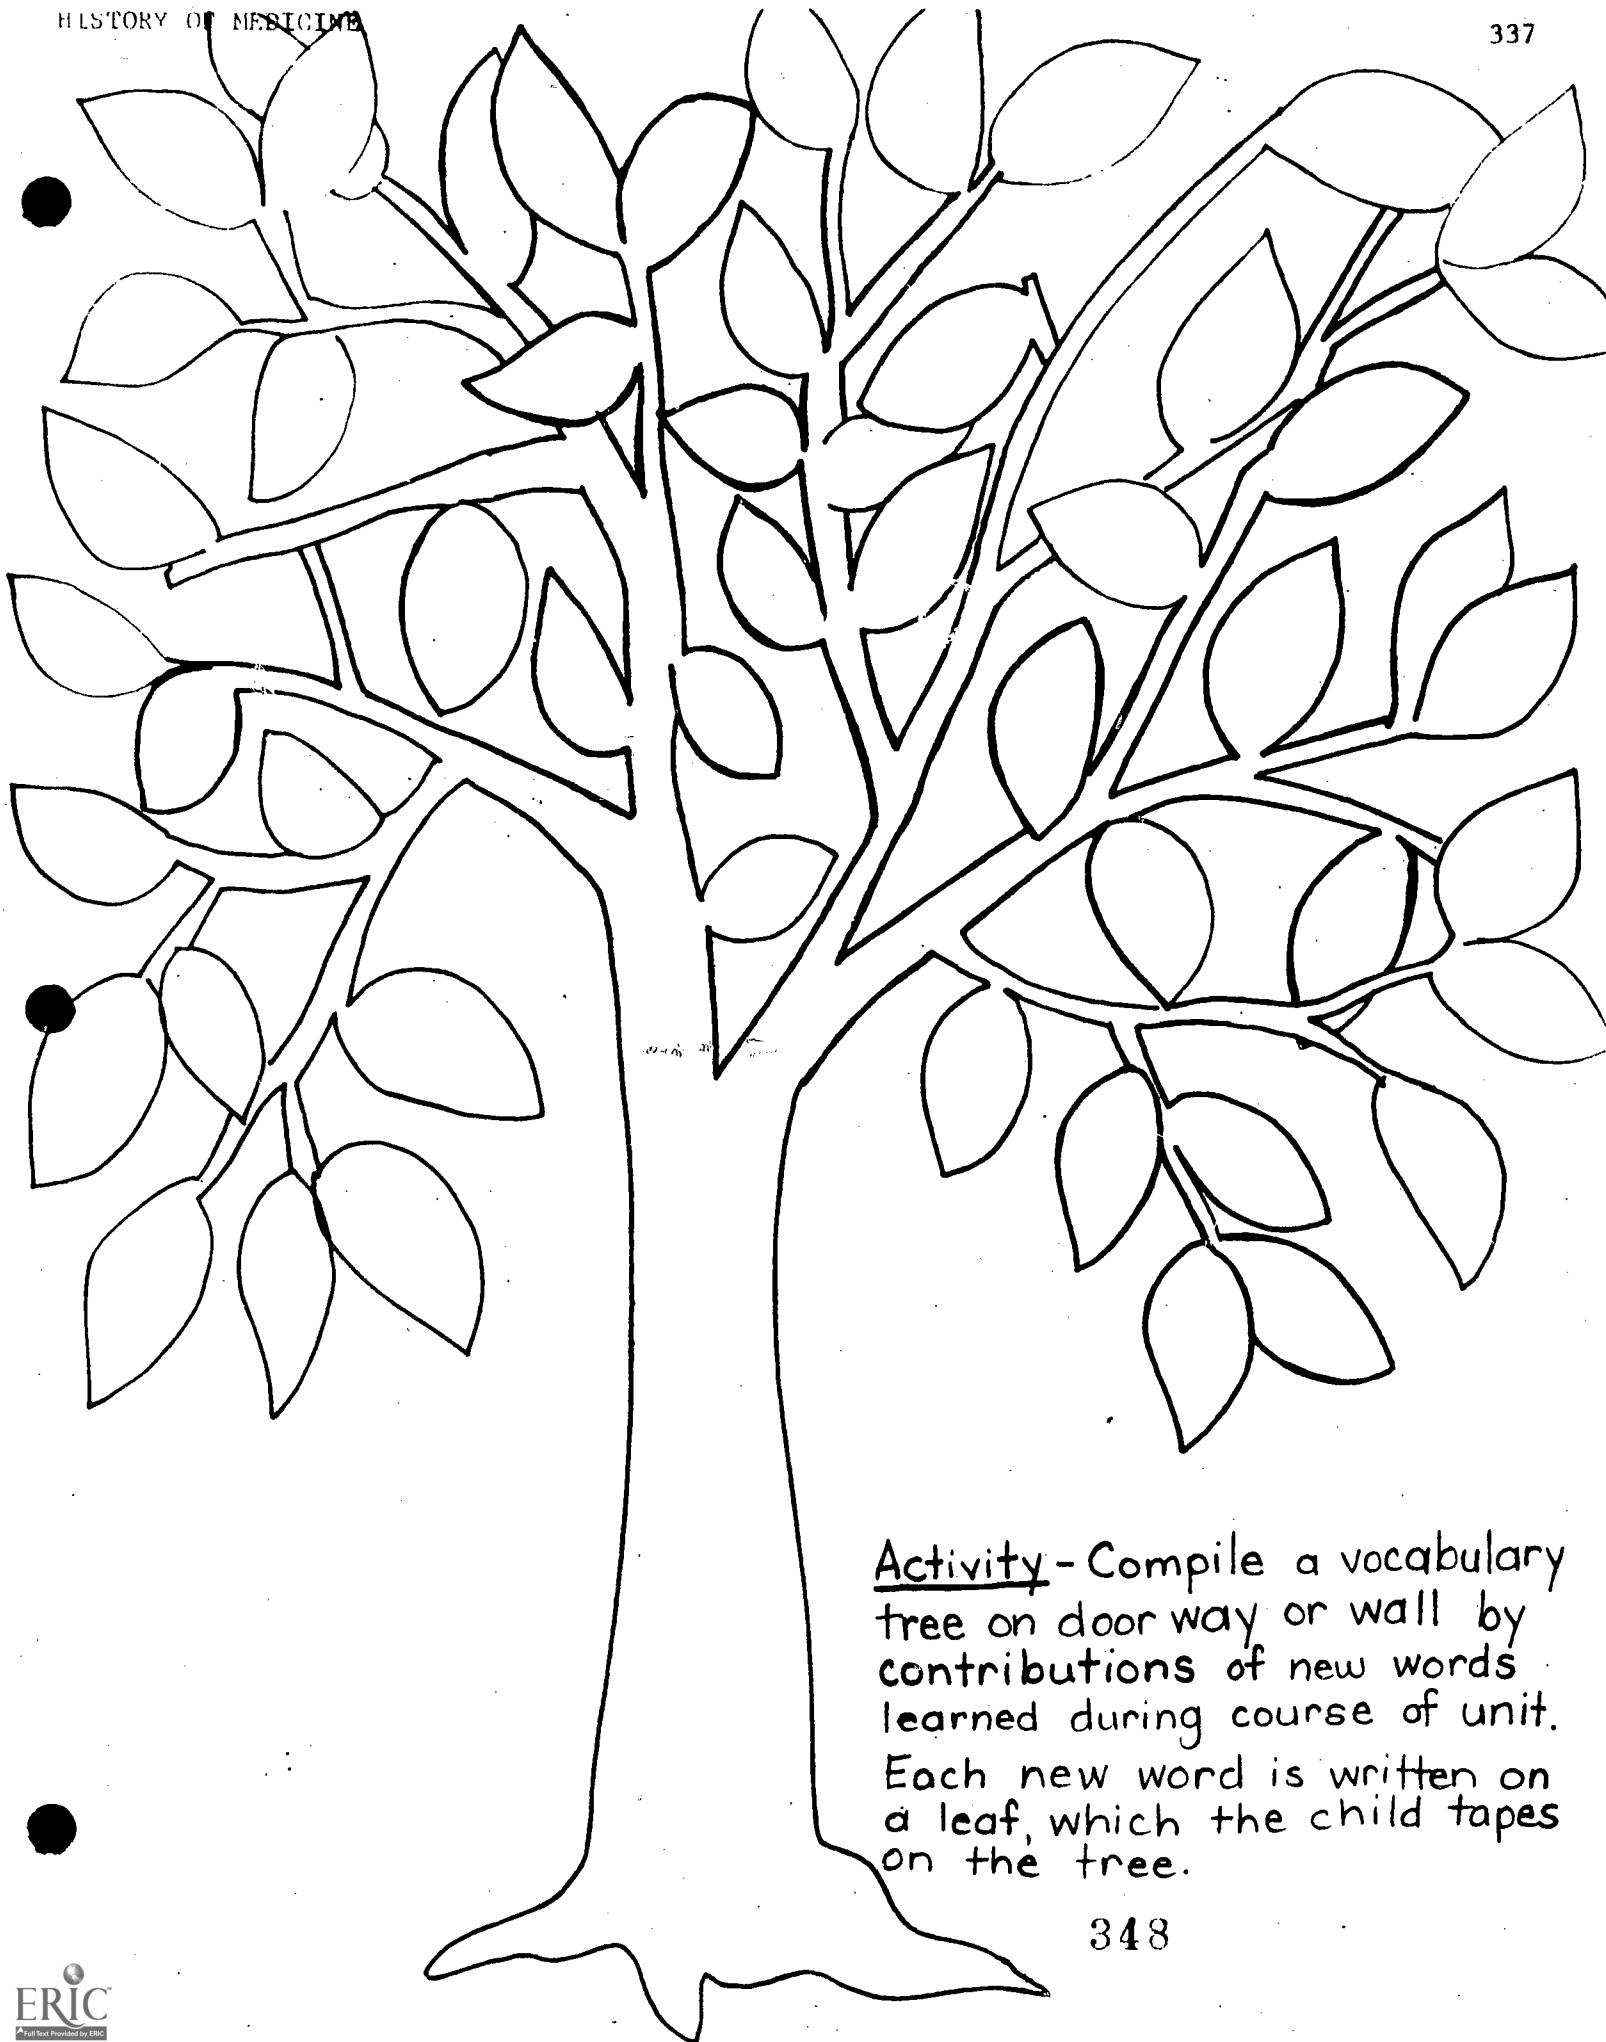 HISTORY OF MEDICINE
337
Activity - Compile a vocabulary
tree on door way or wall by
contributions of new words
learned during course of unit.
Each new word is written on
a leaf, which the child tapes
on the tree.
348
ERIC
Full Text Provided by ERIC